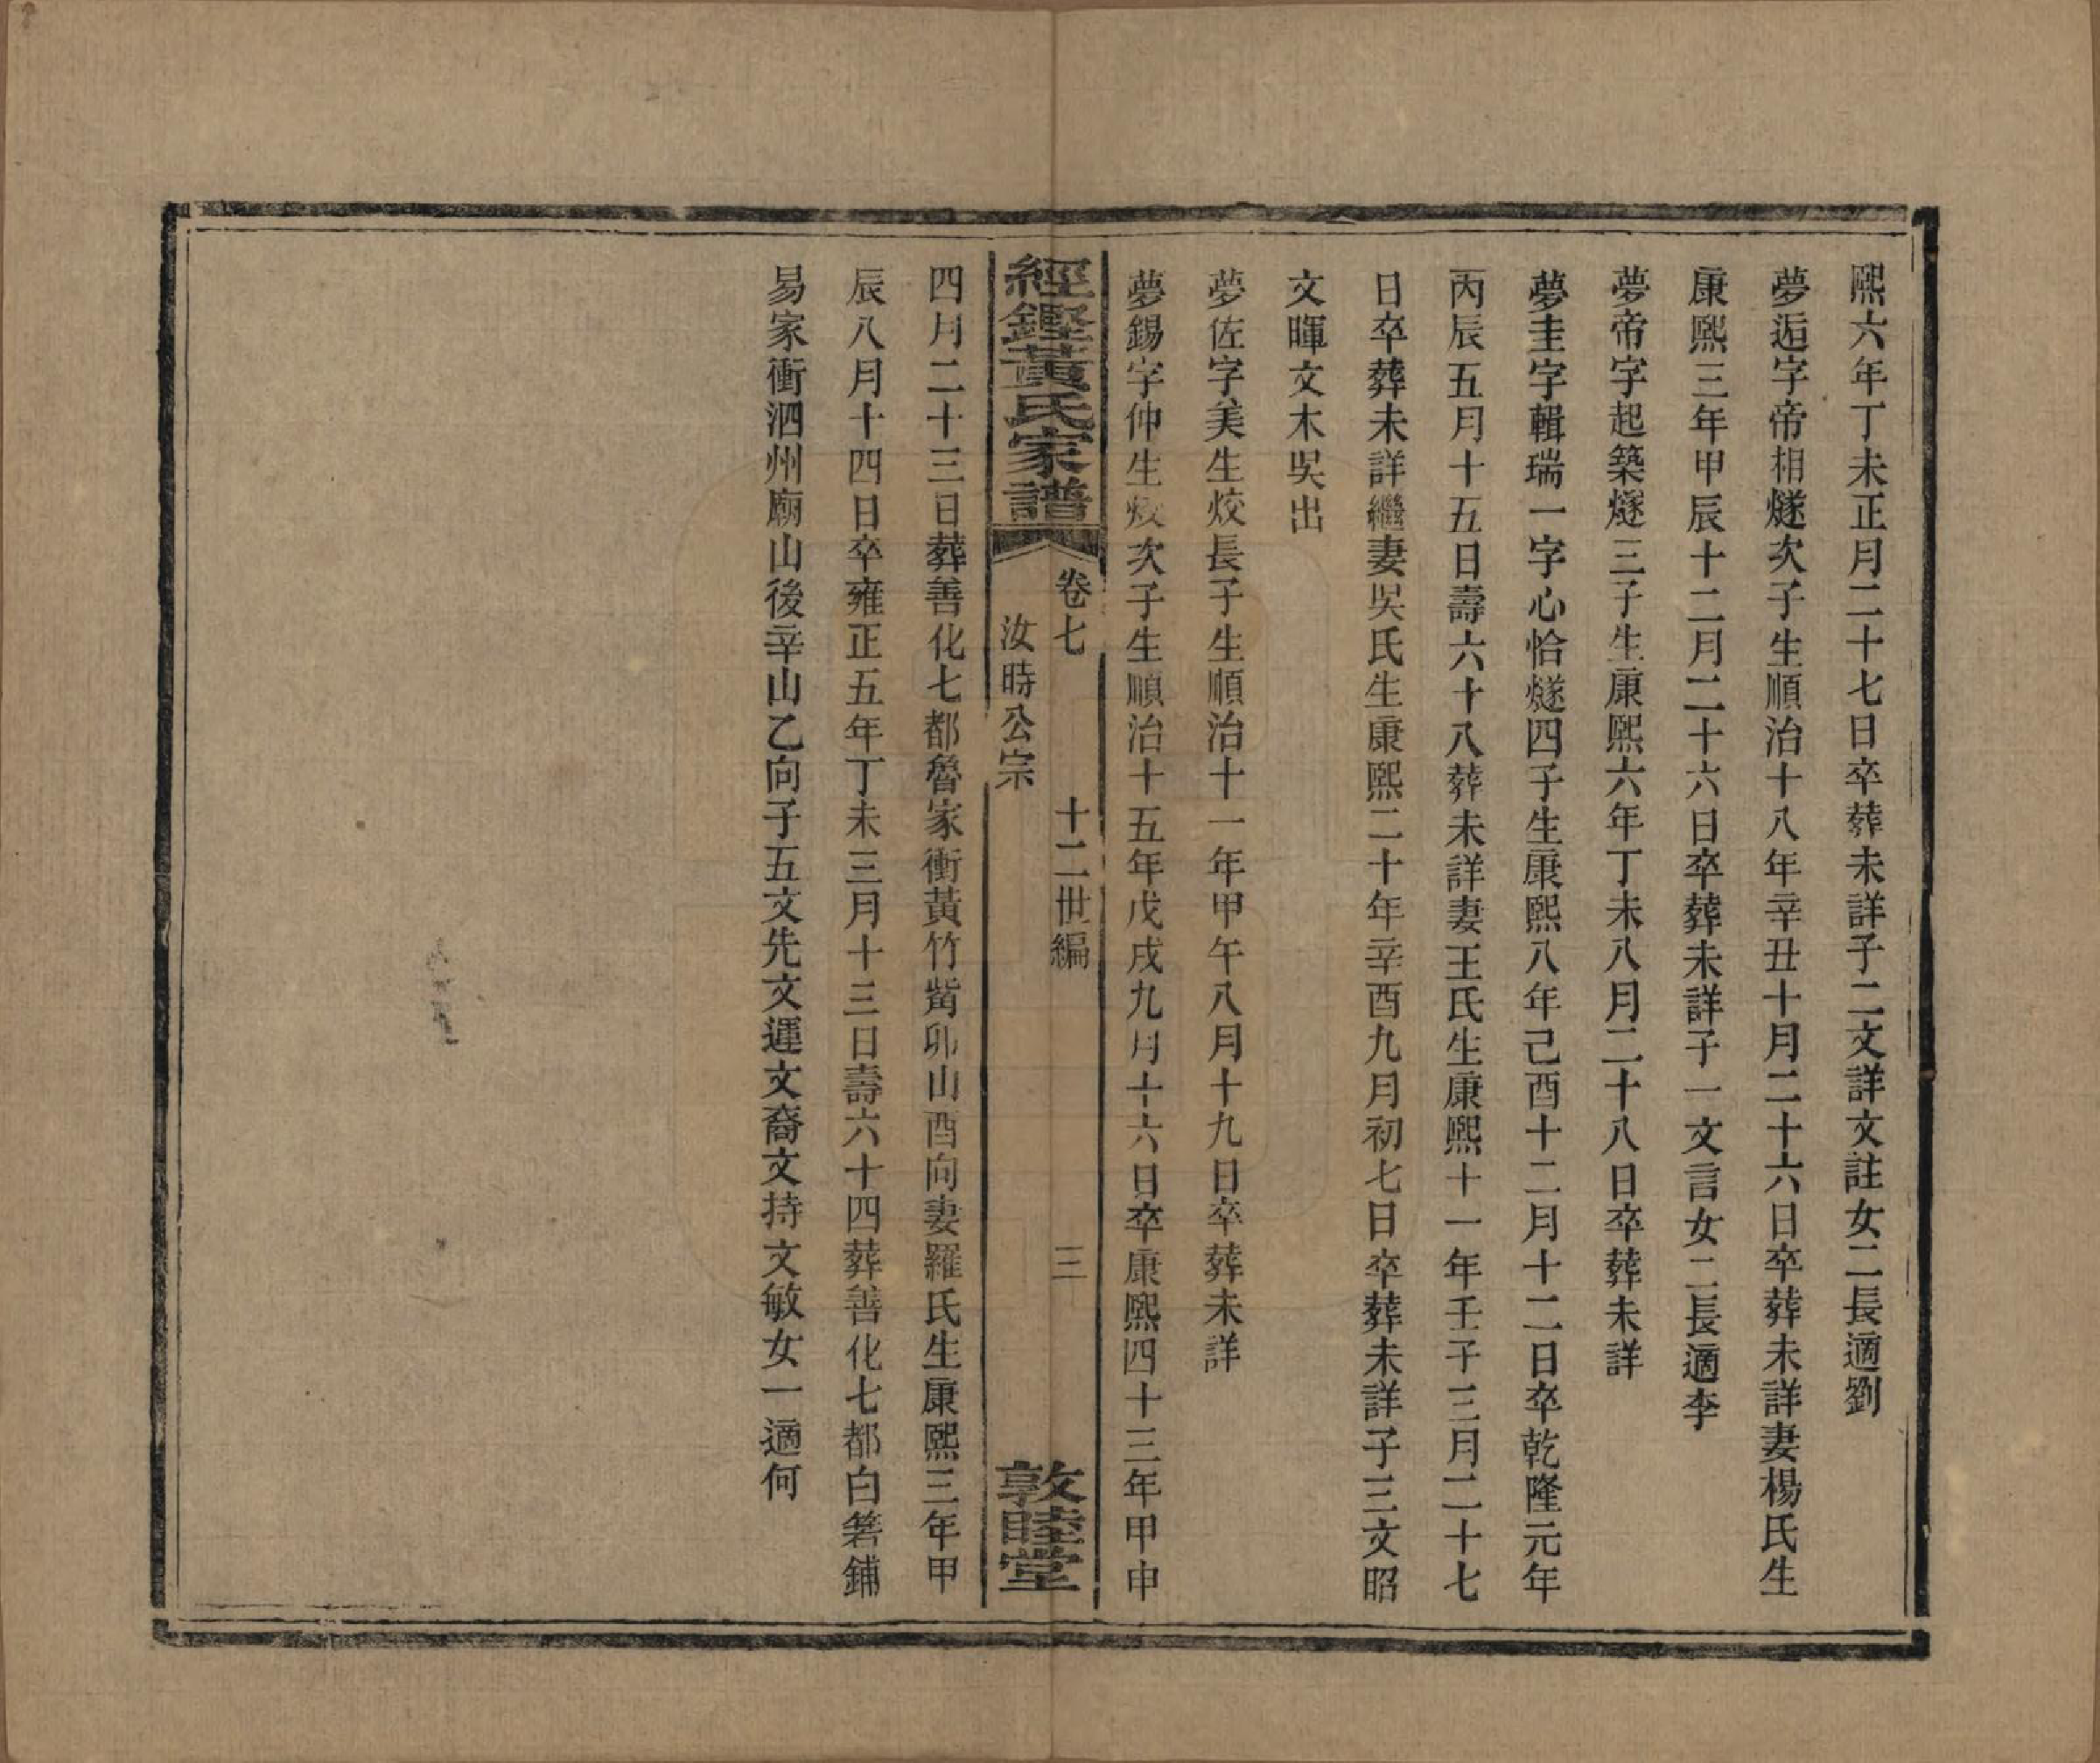 熙六年丁未正月二十七日卒葬未詳子二文詳文註女二長適劉
夢逅字帝相燧次子生順治十八年辛丑十月二十六日卒葬未詳妻楊氏生
康熙三年甲辰十二月二十六日卒葬未詳子一文言女二長適李
夢帝字起築燧三子生康熙六年丁未八月二十八日卒葬未詳
夢圭字輯瑞一字心恰燧四子生康熙八年己酉十二月十二日卒乾隆元年
丙辰五月十五日壽六十八葬未詳妻王氏生康熙十一年壬子三月二十七
日卒葬未詳繼妻吳氏生康熙二十年辛酉九月初七日卒葬未詳子三文昭
文暉文木吳出
夢佐字美生烄長子生順治十一年甲午八月十九日卒葬未詳
夢錫字仲生烄次子生順治十五年戊戌九月十六日卒康熙四十三年甲申
經鏗黃氏家譜
卷七
十二世編
三
汝時公宗
敦睦堂
四月二十三日葬善化七都魯家衝黃竹嵴卯山酉向妻羅氏生康熙三年甲
辰八月十四日卒雍正五年丁未三月十三日壽六十四葬善化七都白箬鋪
易家衝泗州廟山後辛山乙向子五文先文運文裔文持文敏女一適何